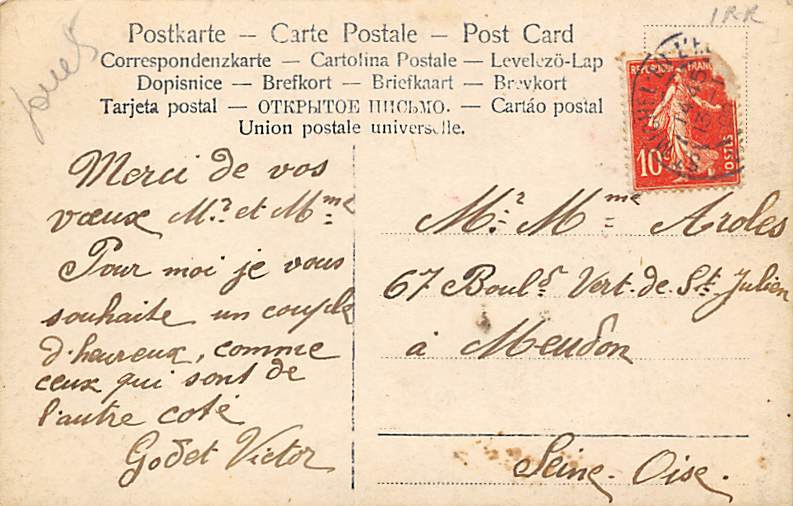 1RR
Postkarte — Carte Postale — Post Card
Correspondenzkarte — Cartolina Postale — Levelező-Lap
Dopisnice — Brefkort — Briefkaart — Brevkort
Tarjeta postal — ОТКРЫТОЕ ПИСЬМО. — Cartáo postal
Union postale universelle.
10c
POSTES
Merci de vos
vœux Mr et Mme
Pour moi je vous
souhaite un couple
d'heureux, comme
ceux qui sont de
l'autre coté
Godet Victor
Mr Mme Aroles
67 Bould Vert. de St Julien
à Meudon
Seine-Oise.